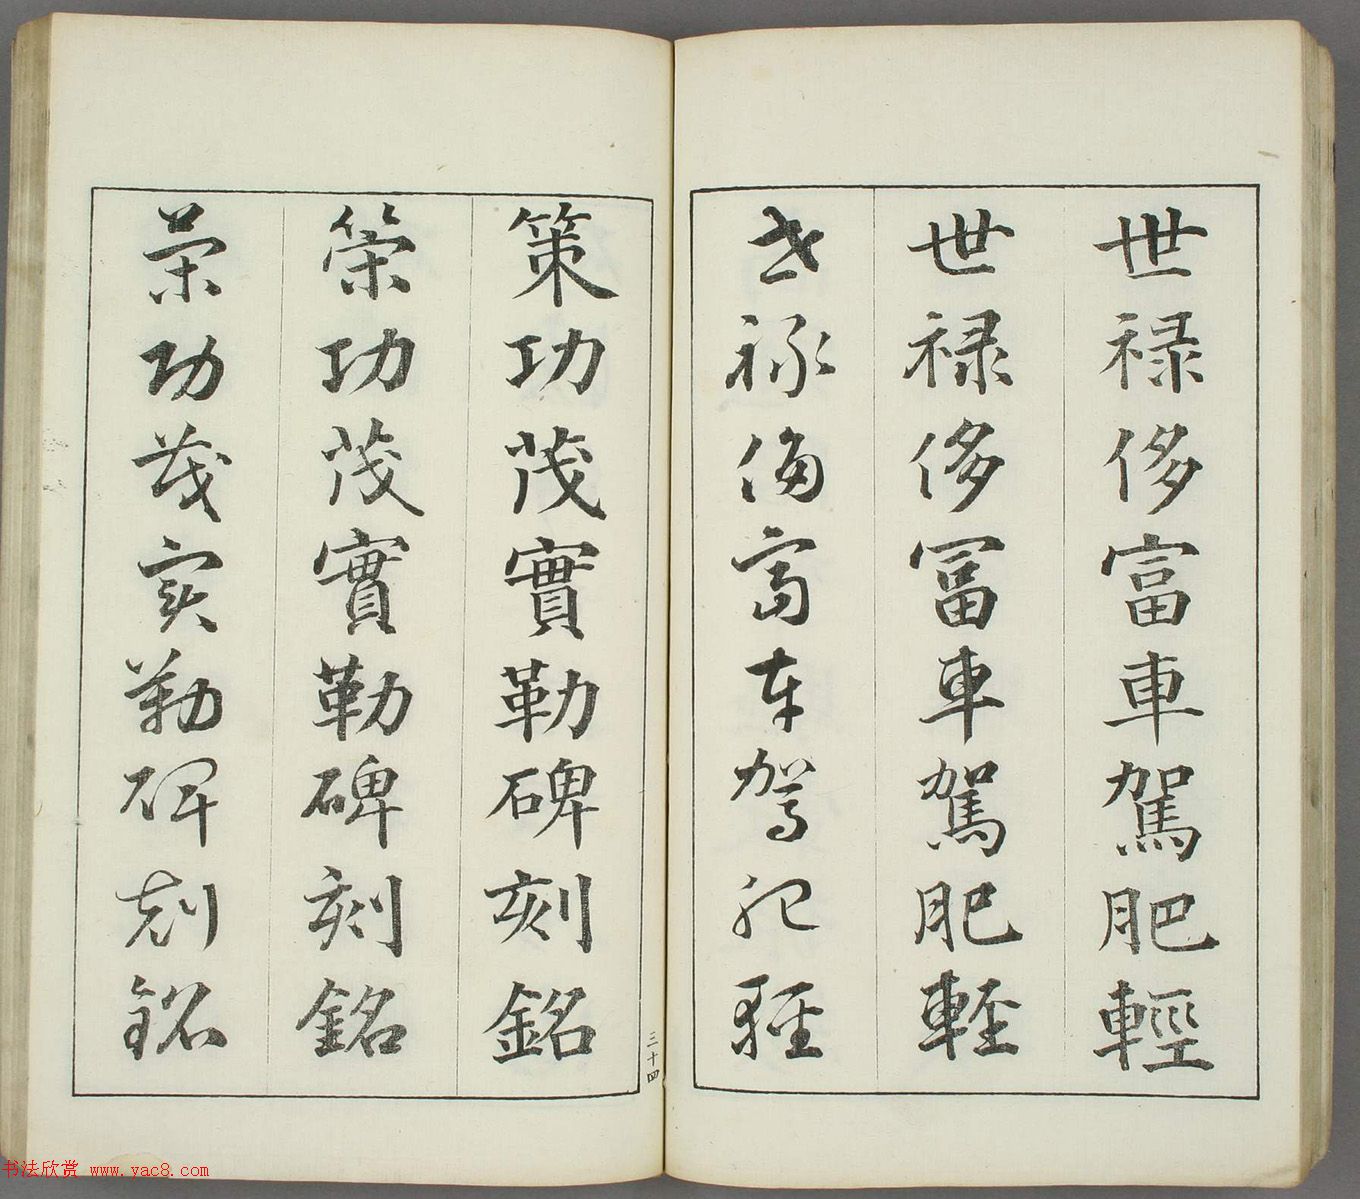 世禄侈富車駕肥輕
世禄侈冨車駕肥軽
世禄侈富車駕肥軽
三十四
策功茂實勒碑刻銘
策功茂實勒碑刻銘
策功茂实勒碑刻銘
书法欣赏 www.yac8.com